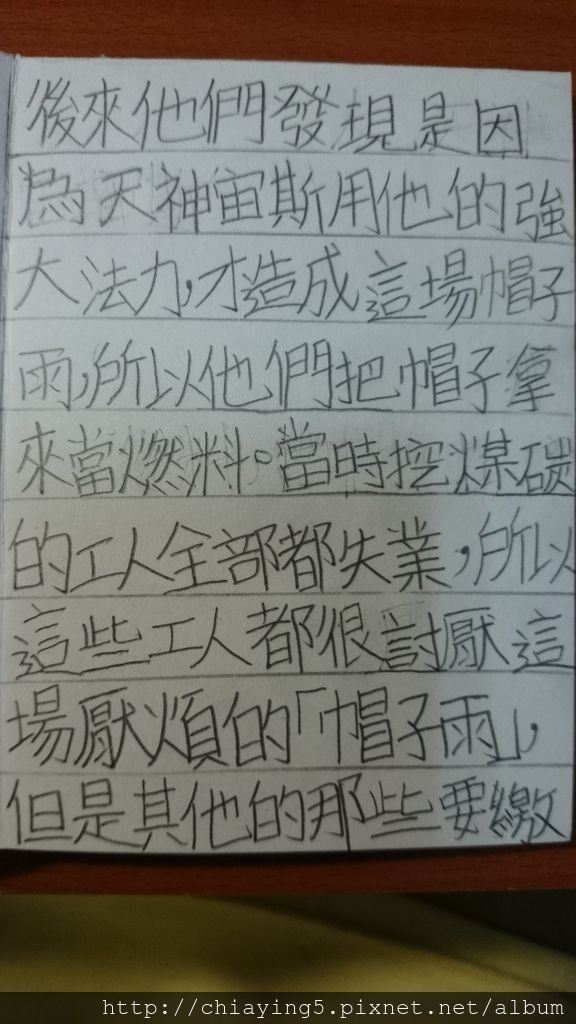 後來他們發現是因
為天神宙斯用他的強
大法力,才造成這場帽子
雨,所以他們把帽子拿
來當燃料。當時挖煤碳
的工人全部都失業,所以
這些工人都很討厭這
場厭煩的「帽子雨」,
但是其他的那些要繳
http://chiaying5.pixnet.net/album